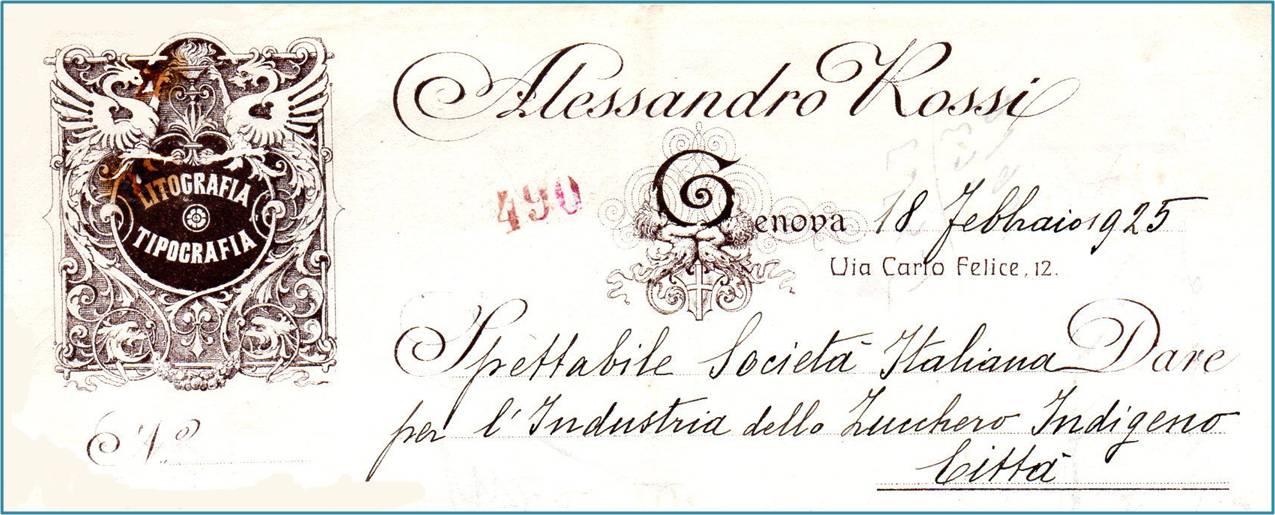 Alessandro Rossi
LITOGRAFIA
TIPOGRAFIA
490
Genova 18 Febbraio 1925
Via Carlo Felice, 12.
Spettabile Società Italiana Dare
per l'Industria dello Zucchero Indigeno
Città
N.º